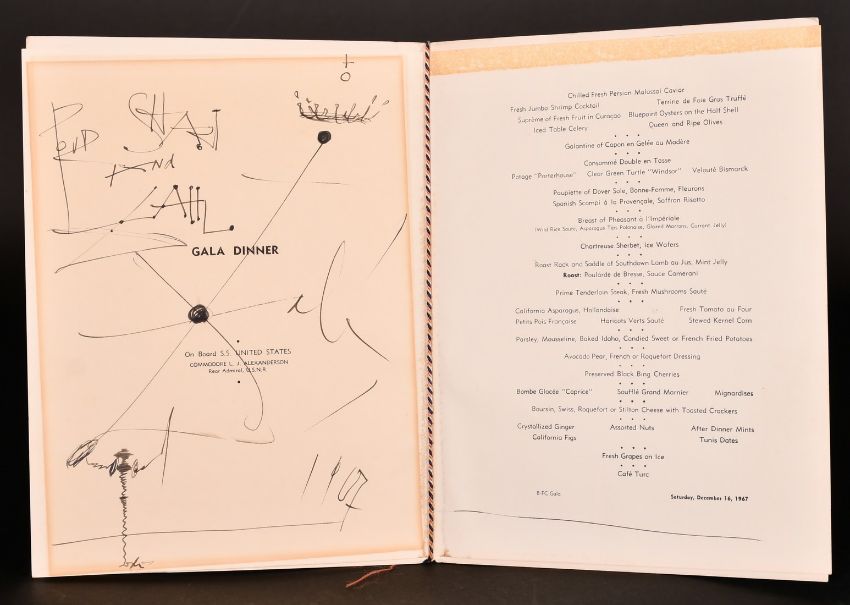 GALA DINNER
On Board S.S. UNITED STATES
COMMODORE L. J. ALEXANDERSON
Rear Admiral, U.S.N.R.
1967
Chilled Fresh Persian Malossol Caviar
Fresh Jumbo Shrimp Cocktail Terrine de Foie Gras Truffé
Suprême of Fresh Fruit in Curaçao Bluepoint Oysters on the Half Shell
Iced Table Celery Queen and Ripe Olives
Galantine of Capon en Gelée au Madère
Consommé Double en Tasse
Potage "Porterhouse" Clear Green Turtle "Windsor" Velouté Bismarck
Paupiette of Dover Sole, Bonne-Femme, Fleurons
Spanish Scampi à la Provençale, Saffron Risotto
Breast of Pheasant à l'Impériale
(Wild Rice Sauté, Asparagus Tips Polonaise, Glazed Marrons, Currant Jelly)
Chartreuse Sherbet, Ice Wafers
Roast Rack and Saddle of Southdown Lamb au Jus, Mint Jelly
Roast: Poularde de Bresse, Sauce Camerani
Prime Tenderloin Steak, Fresh Mushrooms Sauté
California Asparagus, Hollandaise Fresh Tomato au Four
Petits Pois Française Haricots Verts Sauté Stewed Kernel Corn
Parsley, Mousseline, Baked Idaho, Candied Sweet or French Fried Potatoes
Avocado Pear, French or Roquefort Dressing
Preserved Black Bing Cherries
Bombe Glacée "Caprice" Soufflé Grand Marnier Mignardises
Boursin, Swiss, Roquefort or Stilton Cheese with Toasted Crackers
Crystallized Ginger Assorted Nuts After Dinner Mints
California Figs Tunis Dates
Fresh Grapes on Ice
Café Turc
B-FC Gala Saturday, December 16, 1967